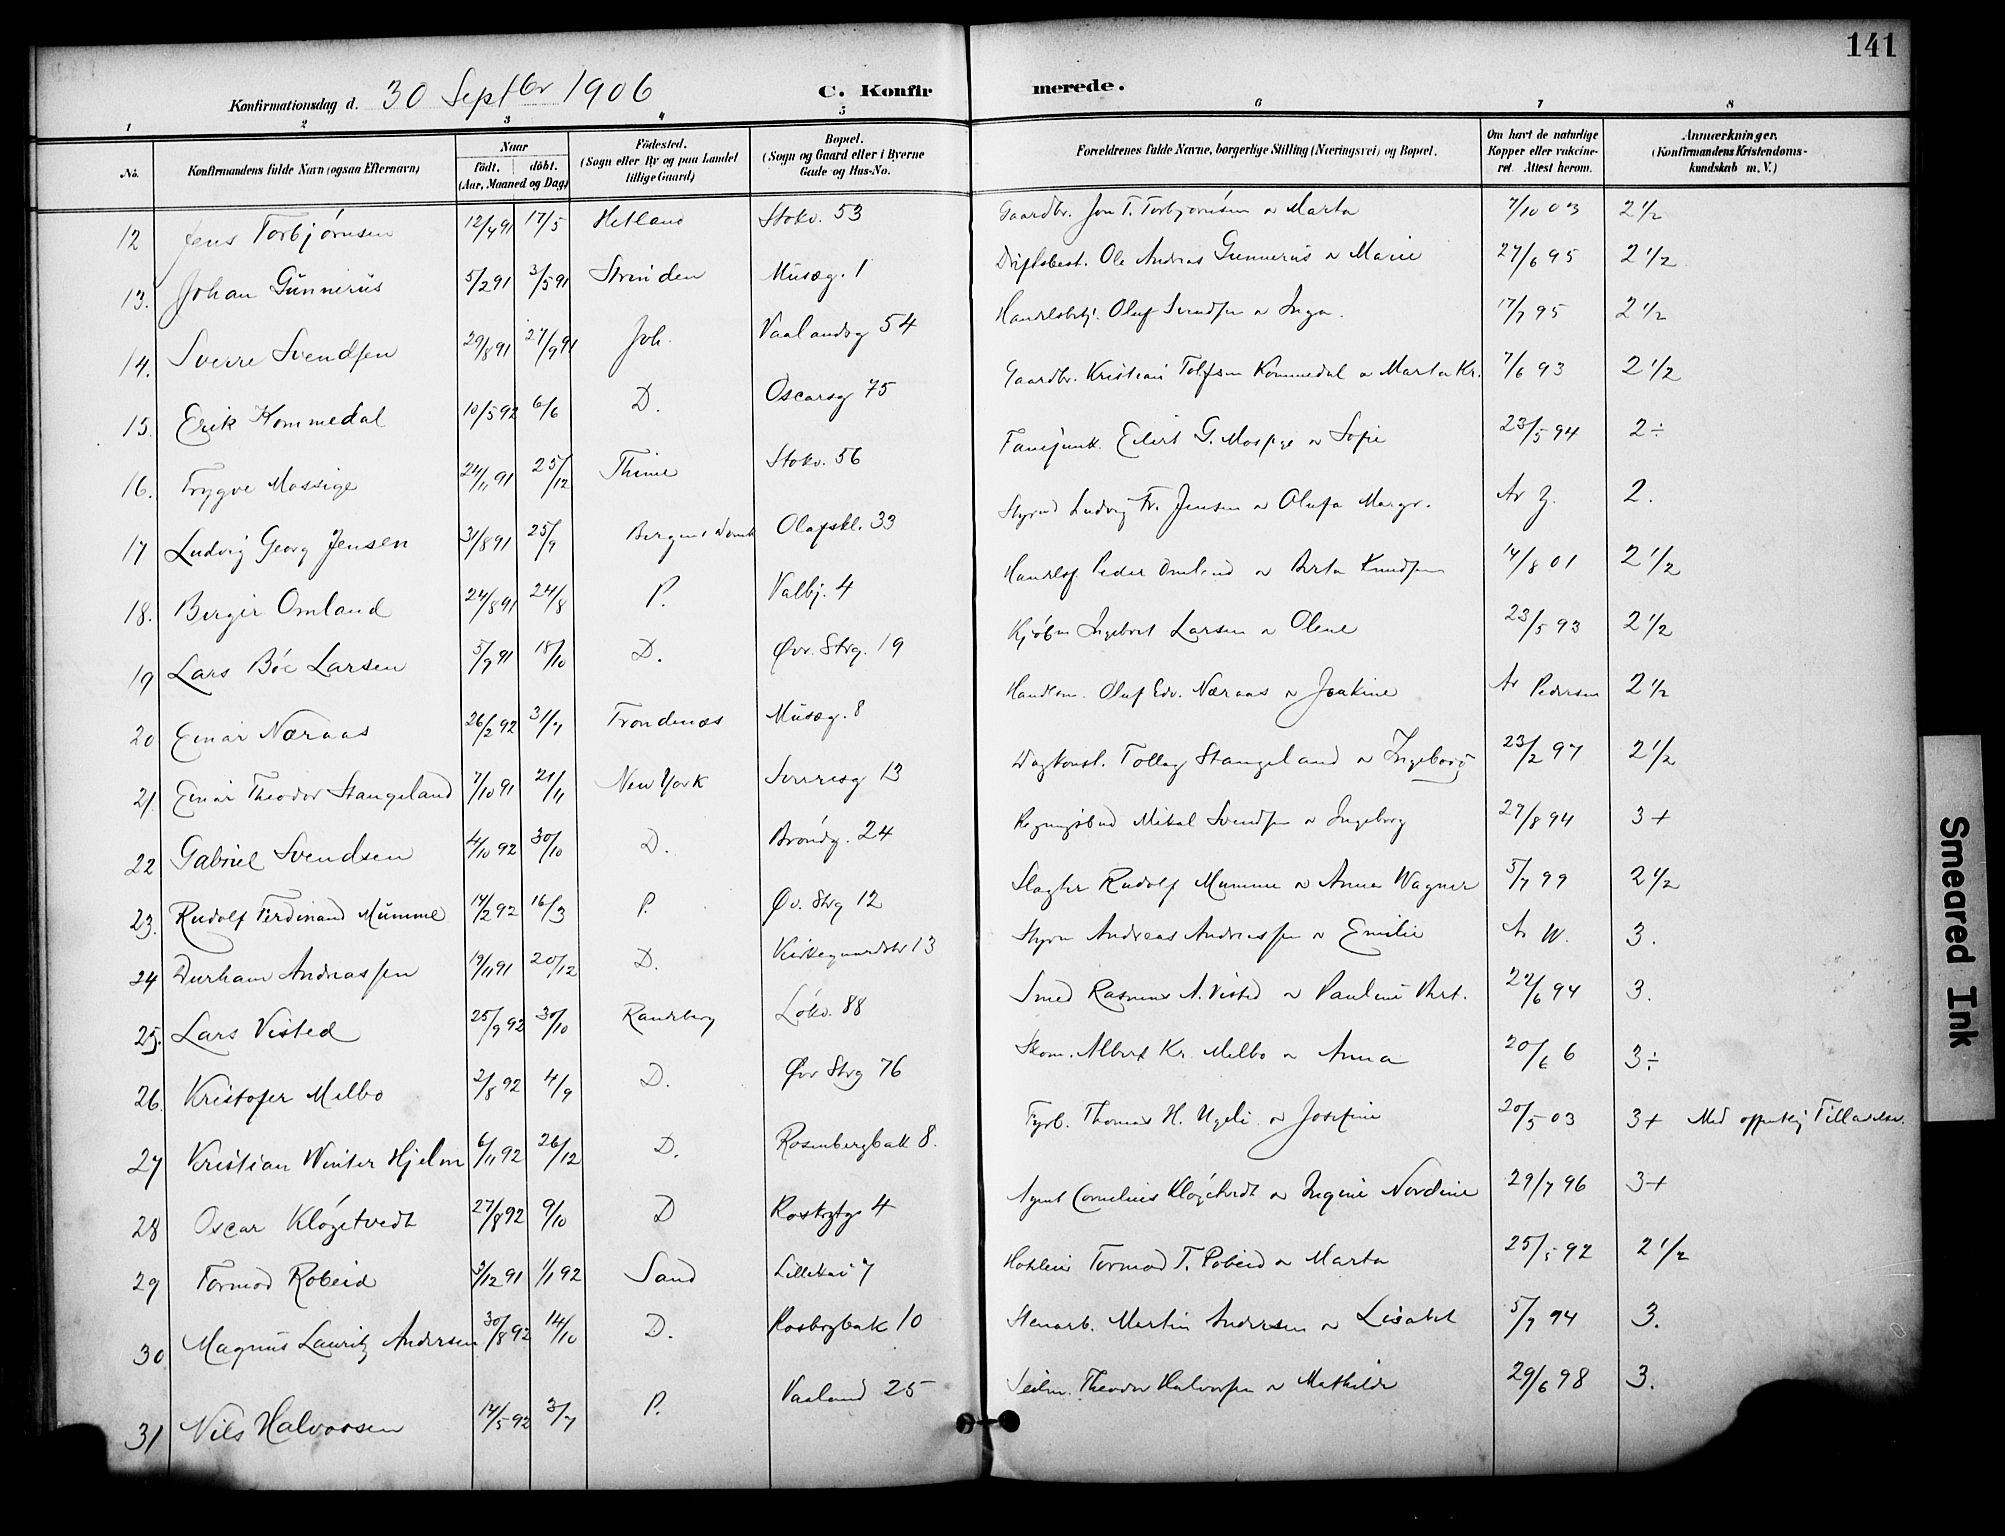 141
Konfirmationsdag d. 30 Septbr 1906 C. Konfirmerede.
1 2 3 4 5 6 7 8
No. Konfirmandens fulde Navn (ogsaa Efternavn) Naar födt. döbt. (Aar, Maaned og Dag) Födested. (Sogn eller By og paa Landet tillige Gaard) Bopæl. (Sogn og Gaard eller i Byerne Gade og Hus-No. Forældrenes fulde Navne, borgerlige Stilling (Næringsvei) og Bopæl. Om havt de naturlige Kopper eller vakcineret. Attest herom. Anmærkninger. (Konfirmandens Kristendomskundskab m. V.)
12 Jens Torbjørnsen 12/4 91 17/5 Hetland Stokv. 53 Gaardbr. Jon T. Torbjørnsen o Marta 7/10 03 2 1/2
13. Johan Gunnerus 5/2 91 3/5 91 Strinden Musæg. 1 Driftsbest. Ole Andreas Gunnerus o Marie 27/6 95 2 1/2
14. Sverre Svendsen 29/8 91 27/9 91 Joh. Vaalandsg 54 Handelsbetj. Oluf Svendsen o Inga. 17/7 95 2 1/2
15. Erik Kommedal 10/5 92 6/6 D. Oscarsg 75 Gaardbr. Kristian Tolfsen Kommedal o Marta Kr. 7/6 93 2 1/2
16. Trygve Mossige 24/11 91 25/12 Thime Stokv. 56 Fanejunk. Eilert G. Mossige o Sofie 23/5 94 2 ÷
17 Ludvig Georg Jensen 31/8 91 25/9 Bergens Domk Olafskl. 33 Styrmd Ludvig Fr. Jensen o Olufa Margr. Av Z. 2.
18. Berger Omland 24/8 91 24/8 P. Valbj. 4 Handelsf. Peder Omland o Berta Knudsen 14/8 01 2 1/2
19 Lars Böe Larsen 5/9 91 18/10 D. Øvr. Strg. 19 Kjøbm Ingebret Larsen o Olene 23/5 93 2 1/2
20 Einar Næraas 26/2 92 31/7 Trondenæs Musæg. 8 Handelsm. Oluf Edv. Næraas o Joakine Av Pedersen 2 1/2
21 Einar Theodor Stangeland 7/10 91 21/11 New York Sverresg 13 Vagtkonst. Tollag Stangeland o Ingeborg 23/2 97 2 1/2
22 Gabriel Svendsen 4/10 92 30/10 D. Brøndg. 24 Regningsbud Mikal Svendsen o Ingeborg 27/8 94 3+
23. Rudolf Ferdinand Mumme 14/2 92 16/3 P. Øv. Strg 12 Slagter Rudolf Mumme o Anna Wagner 5/7 99 2 1/2
24 Durham Andreassen 19/11 91 20/12 D. Kirkegaardsv 13 Styrm Andreas Andreassen o Emilie Av W. 3.
25. Lars Visted 25/9 92 30/10 Randeberg Løkv. 88 Smed Rasmus A. Visted o Pauline Bert. 22/6 94 3.
26. Kristofer Melbo 2/8 92 4/9 D. Øvr Strg 76 Skom. Albert Kr. Melbo o Anna 20/6 6 3 ÷
27 Kristian Winter Hjelm 6/11 92 26/12 D. Rosenbergbak 8. Fyrb. Thomas H. o Josefine 20/5 03 3+ Med Tilladelse.
28 Oscar Kløgetvedt 27/8 92 9/10 D 4 Agent Cornelius Kløgetvedt o Ingine Nordine 29/7 96 3+
29 Tormod Röbeid 3/12 91 1/1 92 Sand Lillekai 7 Tormod T. Röbeid o Marta 25/5 92 2 1/2
30 Magnus Lauritz Andersen 30/8 92 14/10 D. Rosbrgbak 10 Stenarb. Martin Andersen o Lisabet 5/7 94 3.
31 Nils Halvorsen 14/5 92 3/7 P. Vaaland 25 Seilm. Theodor Halvorsen o Mathilde 29/6 98 3.
Smeared Ink